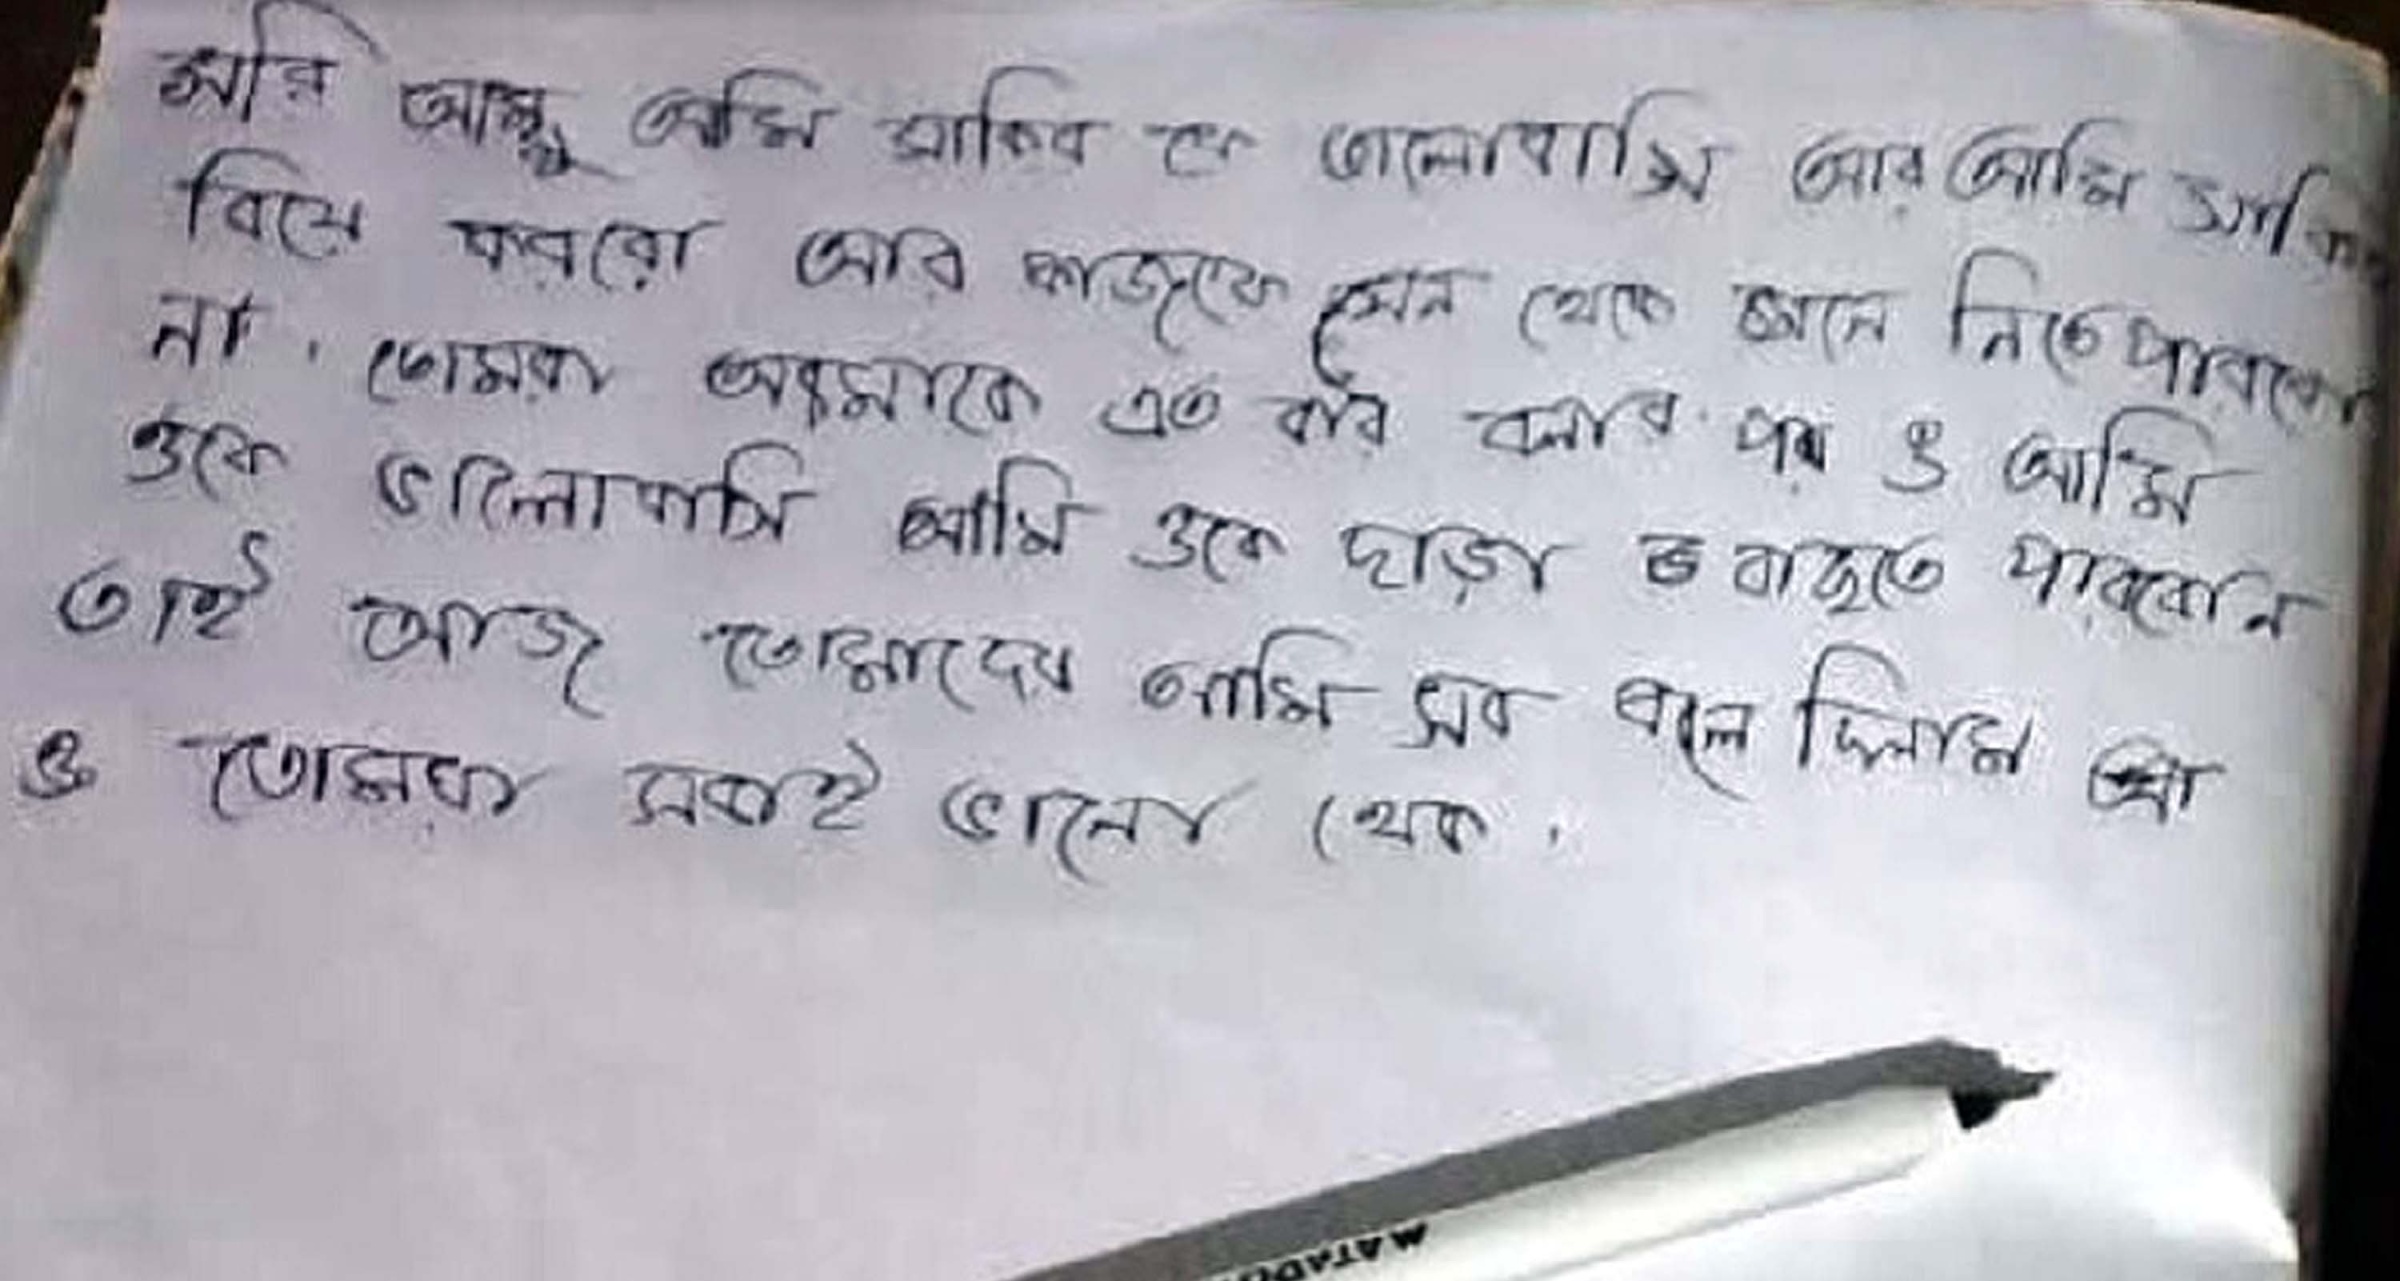 সরি আম্মু আমি সাকিব কে ভালোবাসি আর আমি সাকিব
বিয়ে করবো আর কাজকে মেন থেকে মানে নিতে পারবো
না. তোমরা আমাকে এত বার বলার পর ও আমি
ওকে ভালোবাসি আমি ওকে ছাড়া বাচতে পারবো না
তাই আজ তোমাদের আমি সব বলে দিলাম
ও তোমরা সবাই ভালো থেক.
MATAD